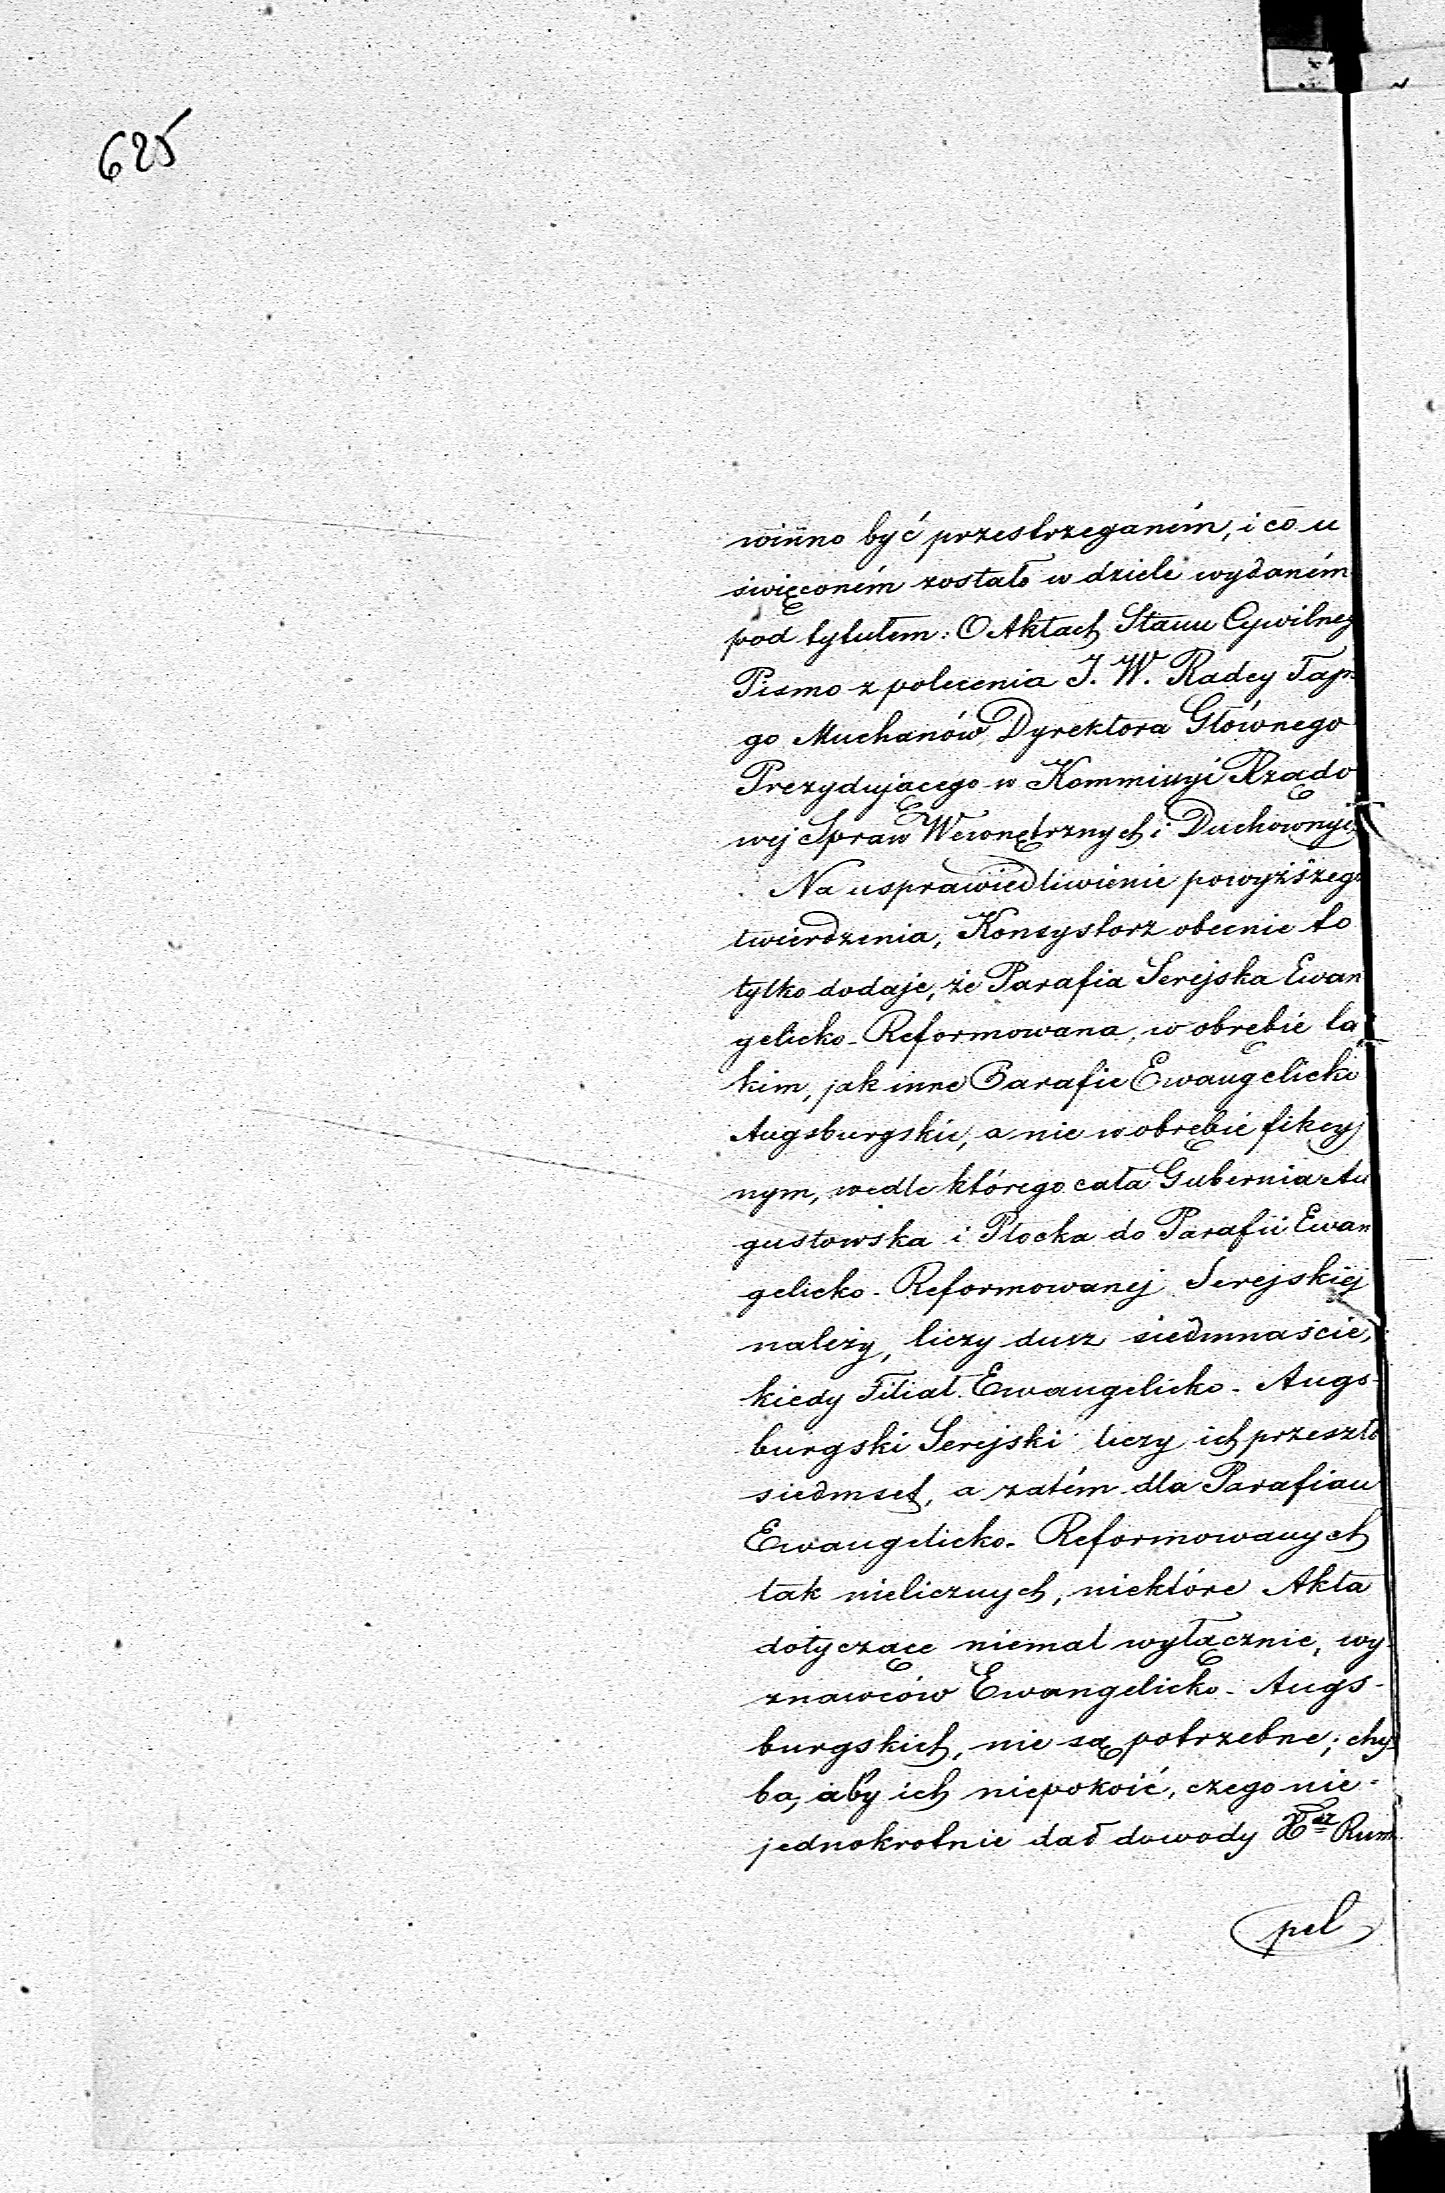 625
winno być przestrzeganém, i co u
święconém zostało w dziele wydaném
pod tytułem: O Aktach Stanu Cywilneg
Pismo z polecenia J. W. Radcy Tajn
go Muchanów Dyrektora Głównego
Prezydującego w Kommissyi Rządo
wej Spraw Wewnętrznych i Duchownych
Na usprawiedliwienie powyższego
twierdzenia, Konsystorz obecnie to
tylko dodaje, że Parafia Serejska Ewan
gelicko-Reformowana, w obrębie ta
kim, jak inne Parafie Ewangelicko
Augsburgskie, a nie w obrębie fikcyj
nym, wedle którego cała Gubernia Au
gustowska i Płocka do Parafii Ewan
gelicko-Reformowanej Serejskiéj
należy, liczy dusz siedmnaście,
kiedy Filiał Ewangelicko-Augs-
burgski Serejski liczy ich przeszło
siedmset, a zatém dla Parafian
Ewangelicko-Reformowanych
tak nielicznych, niektóre Akta
dotyczące niemal wyłącznie, wy-
znawców Ewangelicko-Augs-
burgskich, nie są potrzebne; chy-
ba, aby ich niepokoić, czego nie-
jednokrotnie dał dowody Xdz Rum
pel